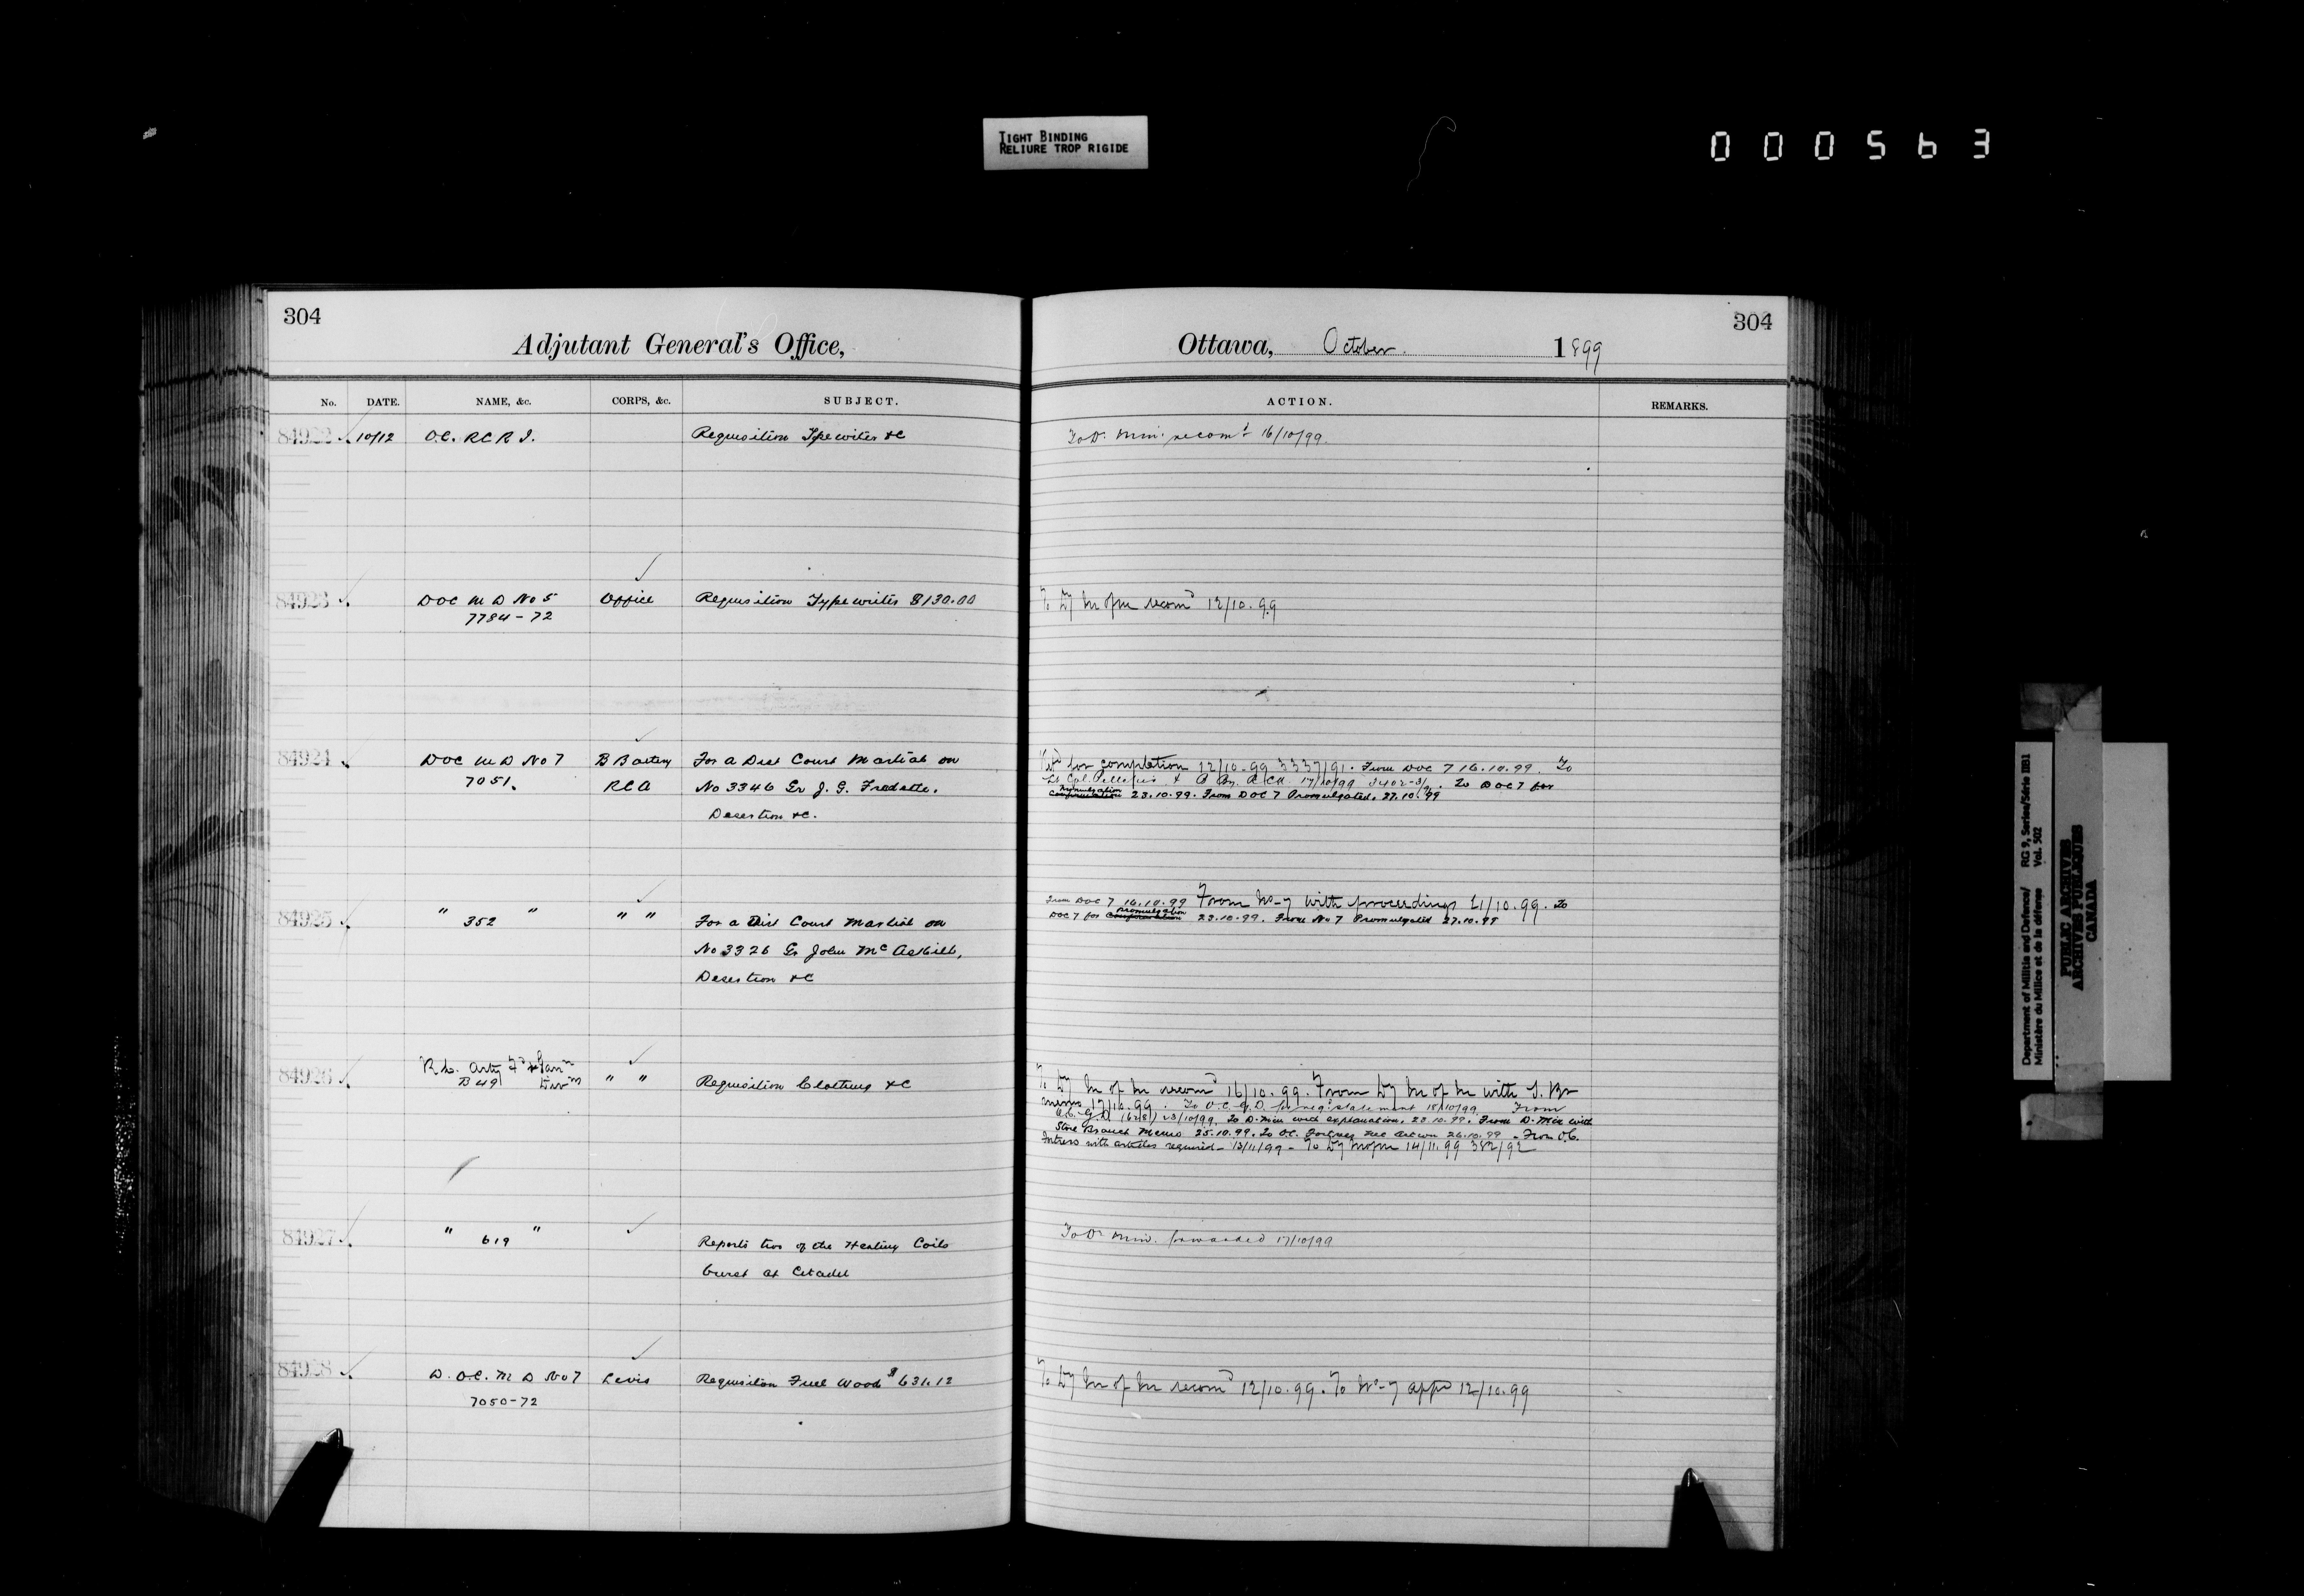 TIGHT BINDING
RELIURE TROP RIGIDE
000563
304
Adjutant General's Office,
No. DATE. NAME, &c. CORPS, &c. SUBJECT.
84922 10/12 O.C. RCRI. Requisition Typewriter &c
84923 DOC M D No 5 Office Requisition Typewriter $130.00
7784-72
84924 DOC M D No 7 B Battery For a Dist Court Martial on
7051. RCA No 3346 Gr J. G. Fredette,
Desertion &c.
84925 " 352 " " " For a Dist Court Martial on
No 3326 Gr John McAskill,
Desertion &c
84926 R.C. Arty Fd & Garn
B 49 Divn " " Requisition Clothing &c
84927 " 619 " Reports two of the Heating Coils
burst at Citadel
84928 D.O.C. M D No 7 Levis Requisition Fuel Wood $631.12
7050-72
304
Ottawa, October 1899
ACTION. REMARKS.
To D. Min. recomd 16/10/99.
To Dy M of M recomd 12/10.99
Retd for completion 12/10.99 3337/91. From DOC 7 16.10.99. To
Lt Col. Pelletier & B By. RCA 17/10/99 . To DOC 7 for
promulgation
confirmation 23.10.99. From DOC 7 Promulgated. 27.10.99
From DOC 7 16.10.99 From No-7 with proceedings 21/10.99. To
promulgation
DOC 7 for confirmation 23.10.99. From No 7 Promulgated 27.10.99
To Dy M of M recomd 16/10.99. From Dy M of M with S. Br
memo 17/10.99. To O.C. for statement 18/10/99 From
O.C. 23/10/99, To D. Min with explanation, 23.10.99. From D. Min with
Store Branch Memo 25.10.99. To O.C. 26.10.99 - From O.C.
with articles required - 13/11/99 - To Dy M of M 14/11.99 382/92
To D. Min. forwarded 17/10/99
To Dy M of M recomd 12/10.99. To No-7 appd 12/10.99
Department of Militia and Defence/ RG 9, Series/Série IIB1
Ministère du Milice et de la défense Vol. 502
PUBLIC ARCHIVES
ARCHIVES PUBLIQUES
CANADA